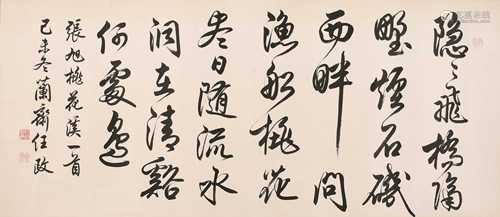 隱〻飛橋隔
野煙石磯
西畔問
漁船桃花
盡日随流水
洞在清谿
何處邊
張旭桃花溪一首
己未冬蘭齋任政